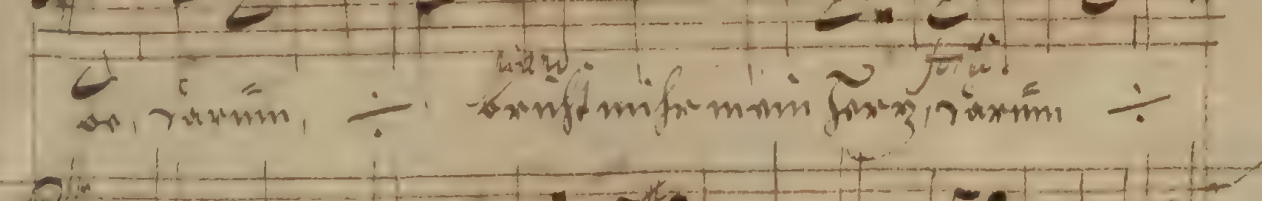 be, darum, ÷ bricht mihr mein Hertz, darum ÷